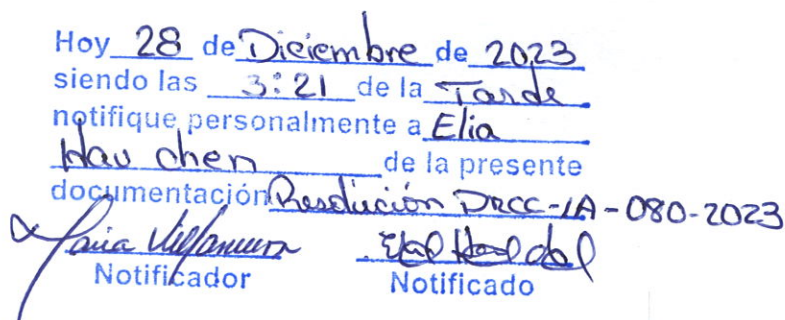 Hoy 28 de Diciembre de 2023
siendo las 3:21 de la Tarde
notifique personalmente a Elia
Hau chen de la presente
documentación Resolución DRCC-IA-080-2023
Notificador Notificado